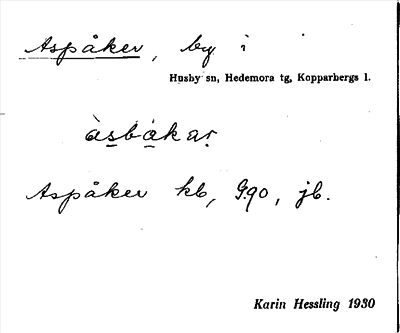 Aspåker, by i
Husby sn, Hedemora tg, Kopparbergs l.
àsbåkar
Aspåker kb, G.90, jb.
Karin Hessling 1930